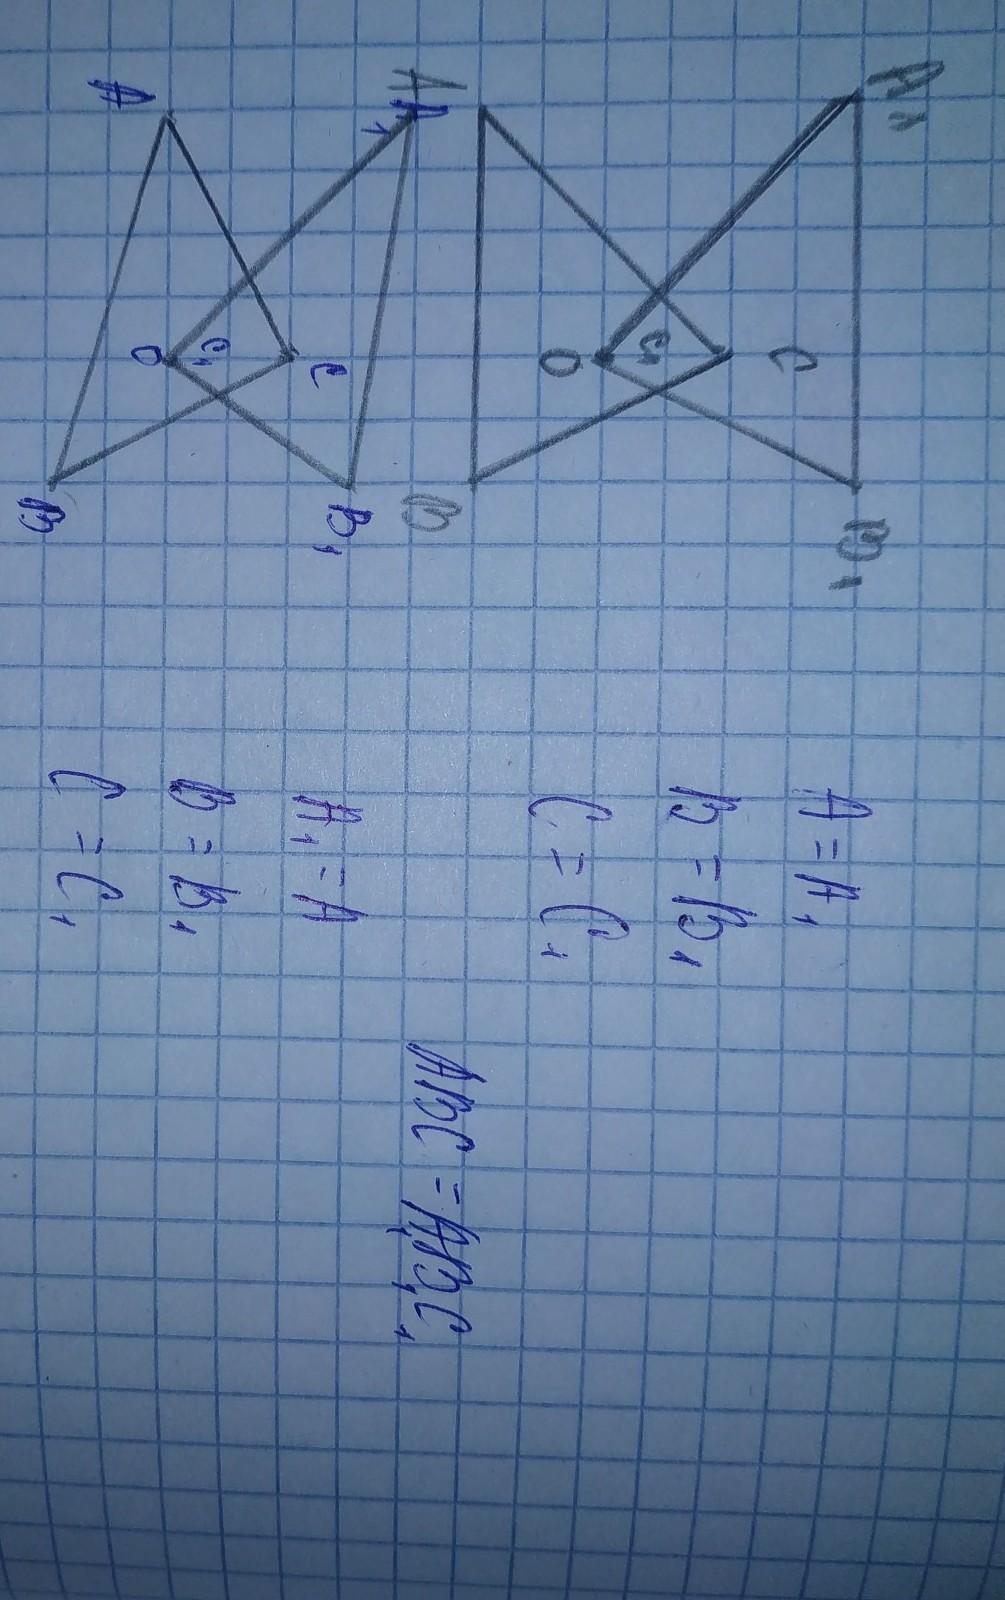 A₁
B₁
C
C₁
O
A
B
A₁
B₁
C
C₁
O
A
B
A = A₁
B = B₁
C = C₁
A₁ = A
B = B₁
C = C₁
ABC = A₁B₁C₁